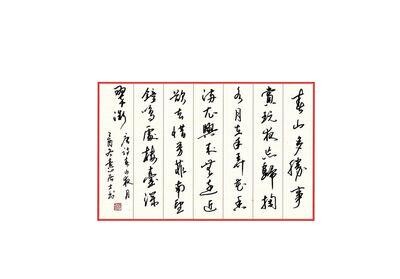 春山多勝事
賞玩夜忘歸掬
水月在手弄花香
滿衣興來無遠近
欲去惜芳菲南望
鐘鳴處樓臺深
翠微
唐詩春山夜月
居士书